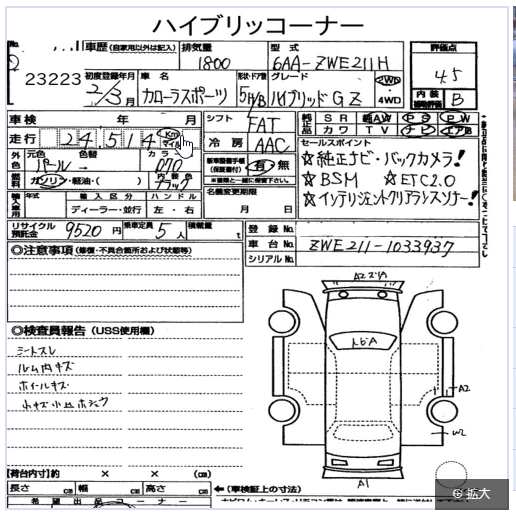 ハイブリッコーナー
No.
23223
車歴 (自家用以外は記入)
排気量
1800
型式
6AA-ZWE211H
評価点
4.5
初度登録年月
2/3月
車名
カローラスポーツ
形状・ドア数
5 H/B
グレード
ハイブリッド G Z
2WD
・
4WD
内装
補助評価
B
車検 年 月
走行 24,514 Km マイル
シフト
FAT
冷房
AAC
純正品 SR 純AW PS PW
カワ TV ナビ エアB
外色 元色 色替 カラー
パール → 070
燃料 ガソリン・軽油・( )
内装色
ブラック
新車整備手帳
(保証書付) 有・無
名義変更期限
月 日
セールスポイント
☆純正ナビ・バックカメラ!
☆BSM ☆ETC2.0
☆インテリジェントクリアランスソナー!
輸入車用 年式 輸入区分 ハンドル
ディーラー・並行 左・右
リサイクル預託金 9520 円
乗車定員 5 人
積載量 t
登録No.
車台No. ZWE211-1033937
シリアルNo.
◎注意事項 (修復・不具合箇所および状態等)
◎検査員報告 (USS使用欄)
シートスレ
ルム内キズ
ホイールキズ
小キズ小凹ホシュウ
A2
W2
A1
【荷台内寸】約 × × (cm)
長さ cm 幅 cm 高さ cm ←(車検証上の寸法)
希望出品コーナー
拡大